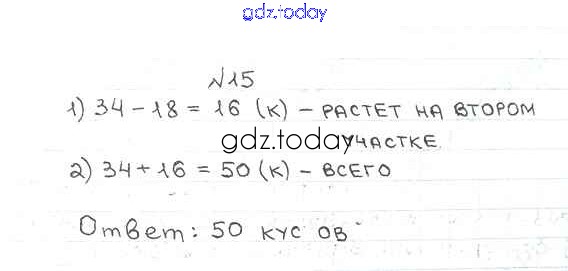 gdz.today
№15
1) 34 - 18 = 16 (к) - РАСТЕТ НА ВТОРОМ
gdz.today УЧАСТКЕ
2) 34 + 16 = 50 (к) - ВСЕГО
Ответ: 50 КУС ОВ